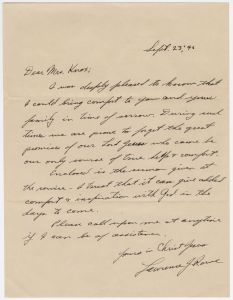 Sept. 23, '42
Dear Mrs. Knox;
I was deeply pleased to know that
I could bring comfort to you and your
family in time of sorrow. During such
time we are prone to forget the great
promises of our Lord Jesus who came be
our only source of true hope & comfort.
Enclosed is the sermon given at
the service - I trust that it can give added
comfort & inspiration with God in the
days to come.
Please call upon me at anytime
if I can be of assistance.
Yours in Christ Jesus
Lawrence J.